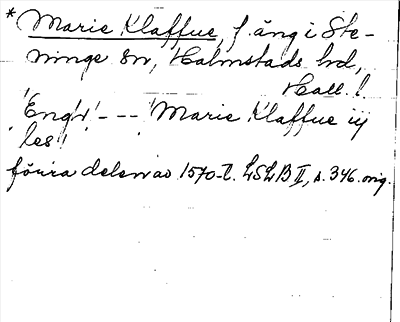 * Marie Klaffue, f. äng i Ste-
ninge sn, Halmstads hd,
Hall. l.
'Engh' - - - Marie Klaffue iij
les!
förra delen av 1570-t. LSLB II, s. 346. orig.